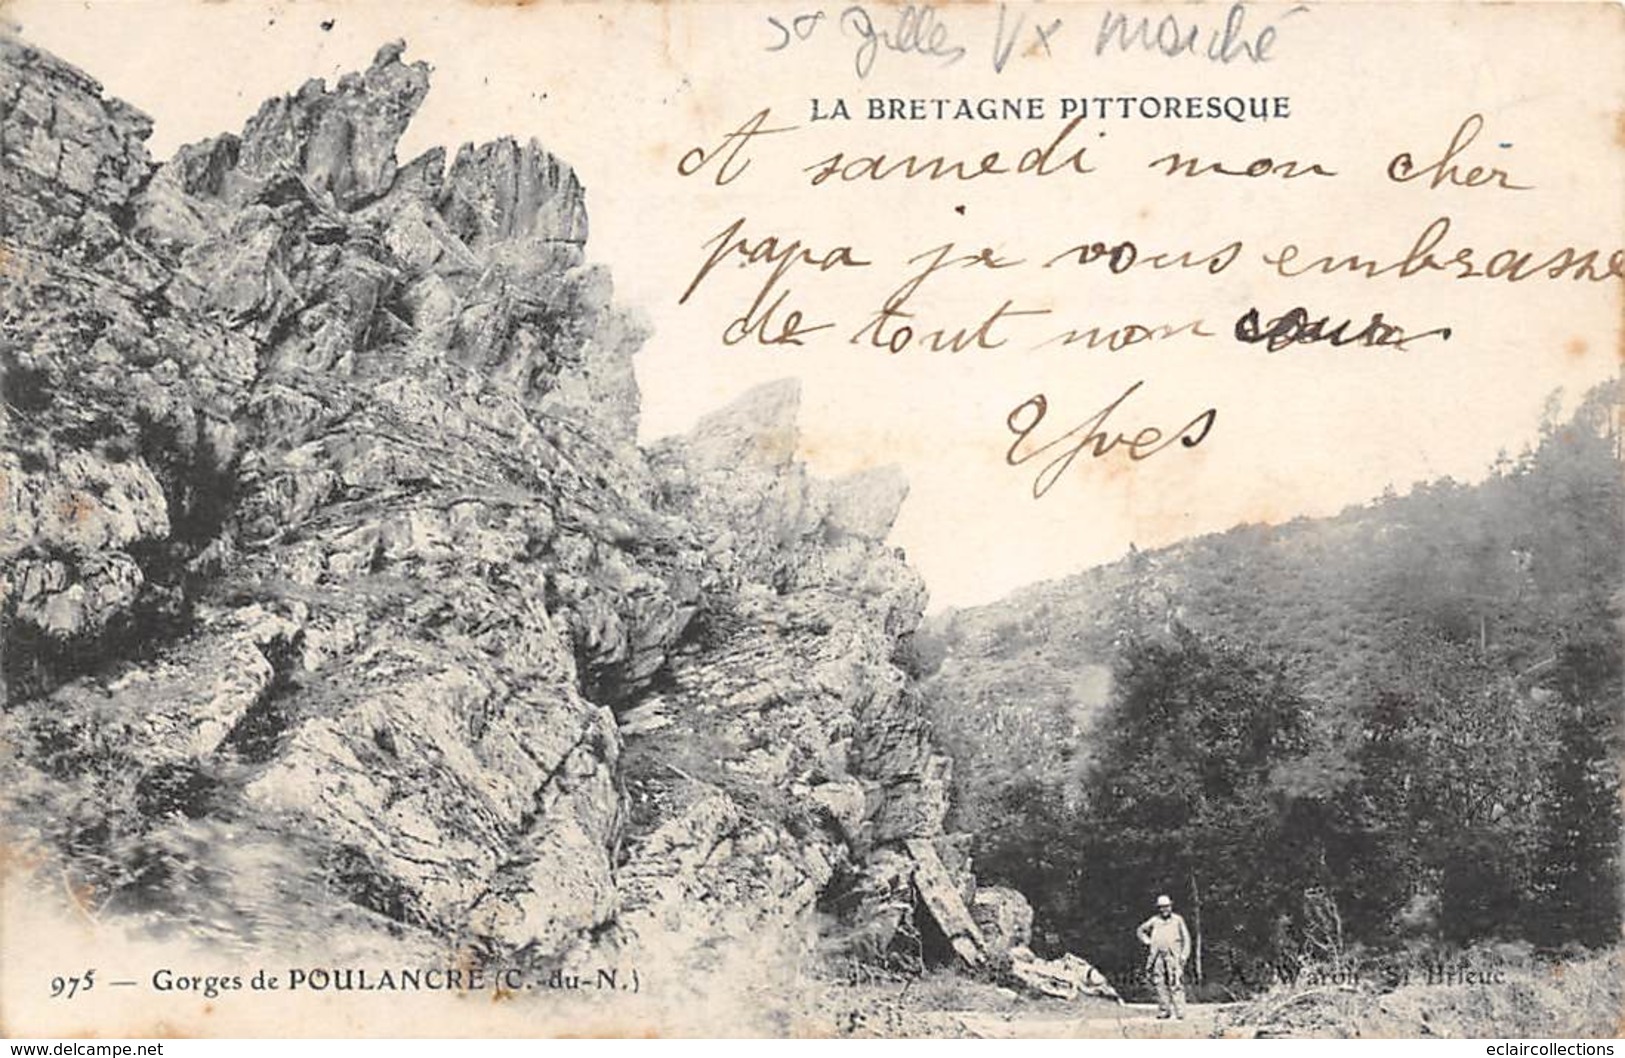 St Gilles Vx Marché
LA BRETAGNE PITTORESQUE
A samedi mon cher
papa je vous embrasse
de tout mon cœur.
Yves
975 — Gorges de POULANCRE (C.-du-N.)
Collection A. Waron, St Brieuc
eclaircollections